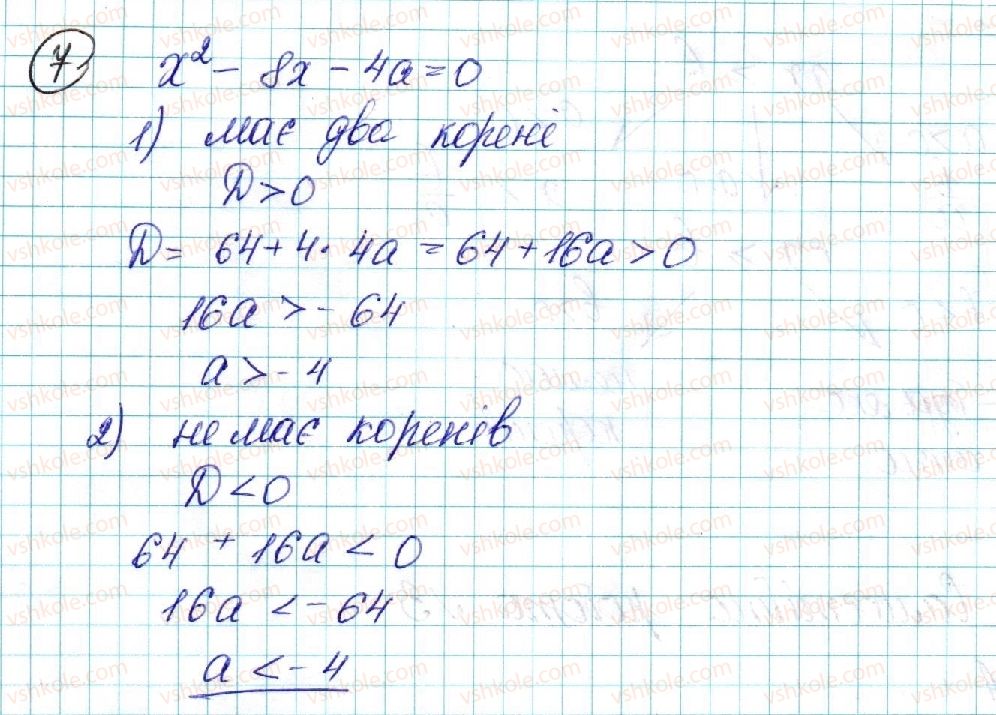 7.
x² - 8x - 4a = 0
1) має два корені
D > 0
D = 64 + 4 · 4a = 64 + 16a > 0
16a > - 64
a > - 4
2) немає коренів
D < 0
64 + 16a < 0
16a < - 64
a < - 4